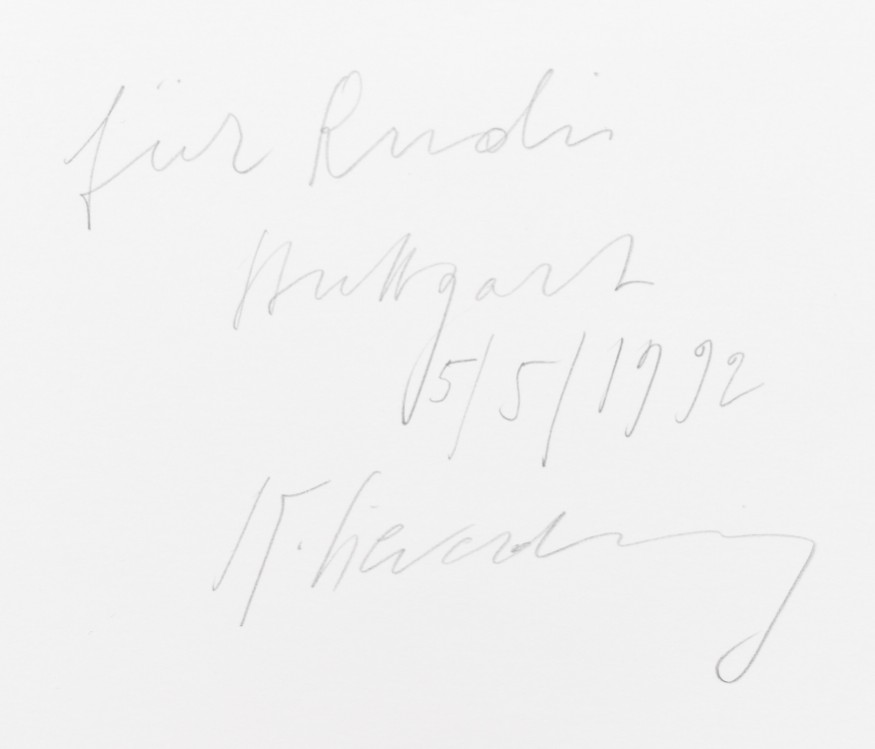 für Rudi
Stuttgart
5/5/1992
K. Sieverding